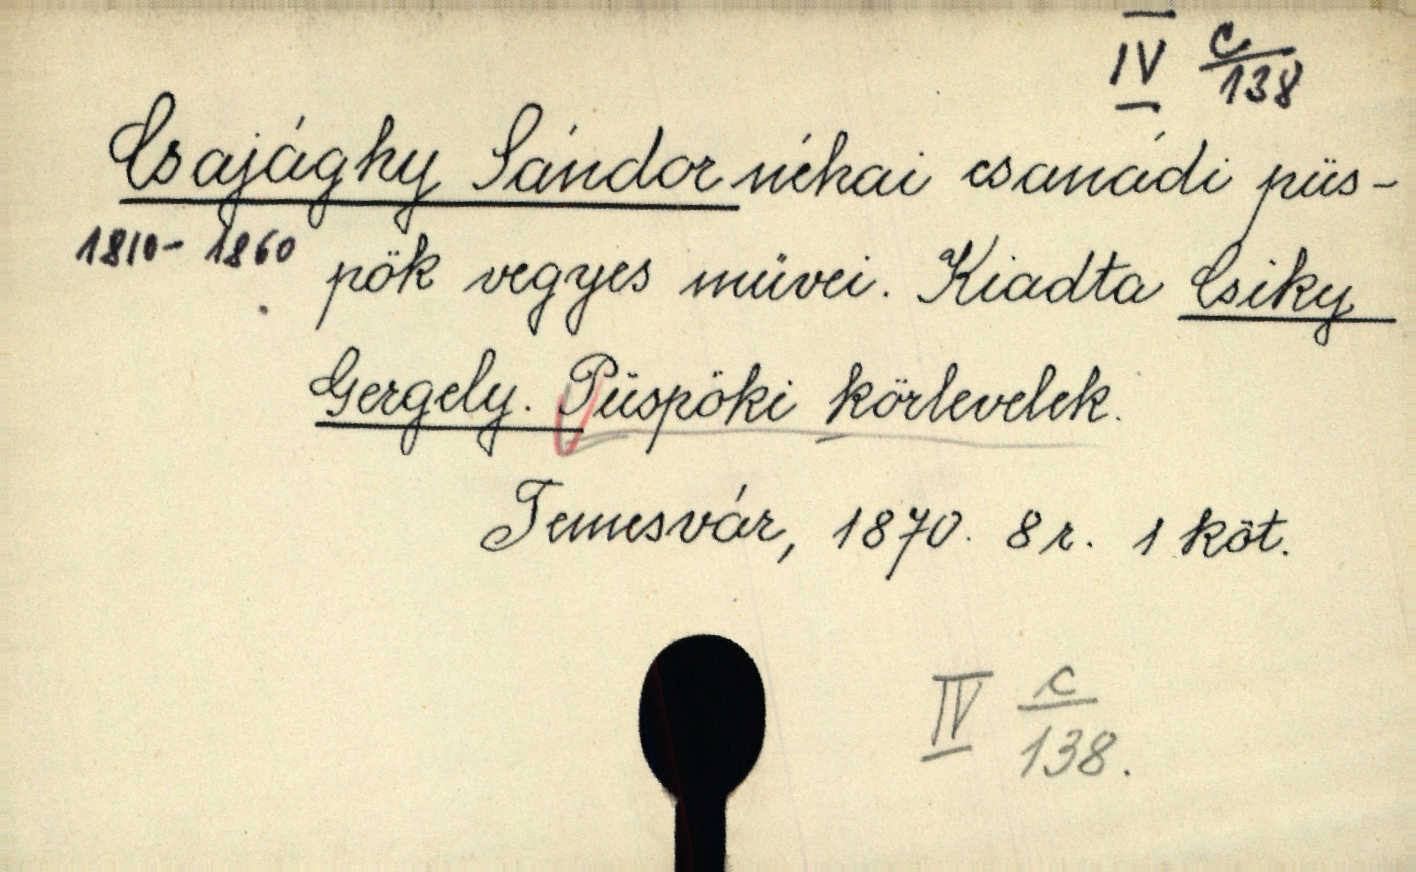 IV c/138
Csajághy Sándor néhai csanádi püs-
1810-1860
pök vegyes müvei. Kiadta Csiky
Gergely. Püspöki körlevelek.
Temesvár, 1870. 8r. 1 köt.
IV c/138.